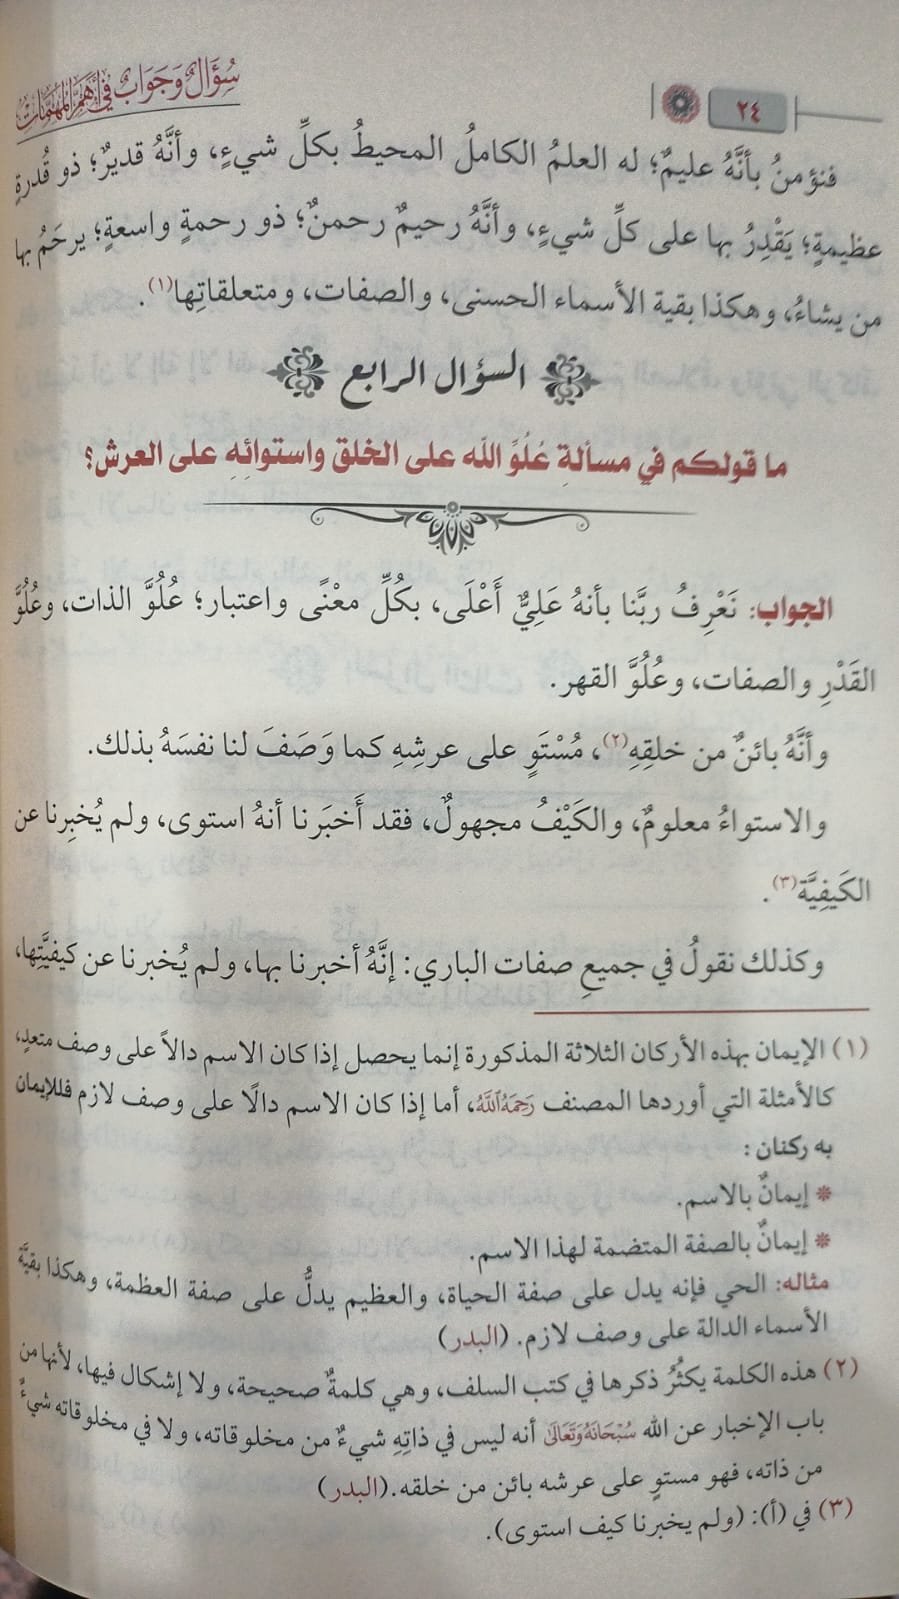 سُؤَالٌ وَجَوَابٌ فِي أَهَمِّ المُهِمَّاتِ
٢٤
فنؤمنُ بأنَّهُ عليمٌ؛ له العلمُ الكاملُ المحيطُ بكلِّ شيءٍ، وأنَّهُ قديرٌ؛ ذو قُدرةٍ
عظيمةٍ؛ يَقْدِرُ بها على كلِّ شيءٍ، وأنَّهُ رحيمٌ رحمنٌ؛ ذو رحمةٍ واسعةٍ؛ يرحَمُ بها
من يشاءُ، وهكذا بقية الأسماء الحسنى، والصفات، ومتعلقاتِها(١).
السؤال الرابع
ما قولكم في مسألةِ عُلُوِّ الله على الخلق واستوائِهِ على العرش؟
الجواب: نَعْرِفُ ربَّنا بأنهُ عَلِيٌّ أَعْلَى، بكُلِّ معْنًى واعتبار؛ عُلُوَّ الذات، وعُلُوَّ
القَدْرِ والصفات، وعُلُوَّ القهر.
وأنَّهُ بائنٌ من خلقِهِ(٢)، مُسْتَوٍ على عرشِهِ كما وَصَفَ لنا نفسَهُ بذلك.
والاستواءُ معلومٌ، والكَيْفُ مجهولٌ، فقد أَخبَرنا أنهُ استوى، ولم يُخبِرنا عن
الكَيفِيَّة(٣).
وكذلك نقولُ في جميعِ صفات الباري: إنَّهُ أخبرنا بها، ولم يُخبرنا عن كيفيَّتِها،
(١) الإيمان بهذه الأركان الثلاثة المذكورة إنما يحصل إذا كان الاسم دالاً على وصف متعدٍ،
كالأمثلة التي أوردها المصنف رَحِمَهُ ٱللَّهُ، أما إذا كان الاسم دالًا على وصف لازم فللإيمان
به ركنان:
* إيمانٌ بالاسم.
* إيمانٌ بالصفة المتضمة لهذا الاسم.
مثاله: الحي فإنه يدل على صفة الحياة، والعظيم يدلُّ على صفة العظمة، وهكذا بقيَّة
الأسماء الدالة على وصف لازم. (البدر)
(٢) هذه الكلمة يكثُرُ ذكرها في كتب السلف، وهي كلمةٌ صحيحة، ولا إشكال فيها، لأنها من
باب الإخبار عن الله سُبْحَانَهُ وَتَعَالَى أنه ليس في ذاتِهِ شيءٌ من مخلوقاته، ولا في مخلوقاته شيءٌ
من ذاته، فهو مستوٍ على عرشه بائن من خلقه.(البدر)
(٣) في (أ): (ولم يخبرنا كيف استوى).